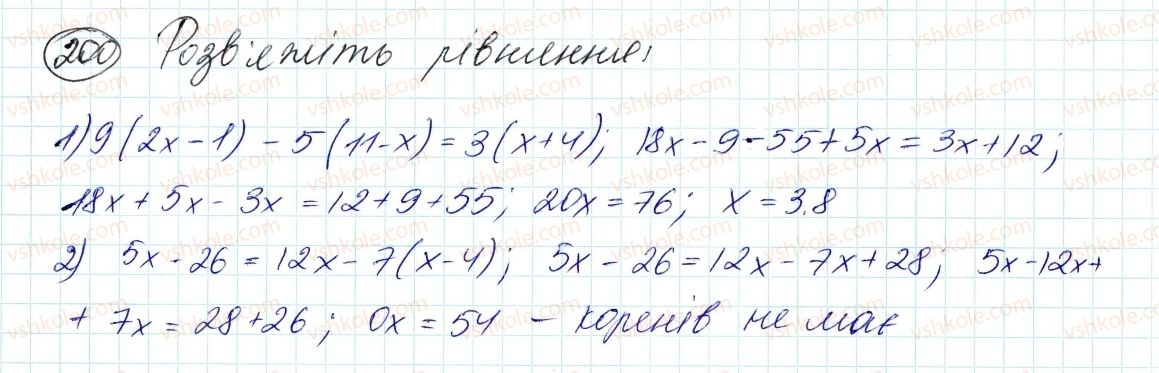 200 Розв'яжіть рівняння:
1) 9(2x-1) - 5(11-x) = 3(x+4); 18x - 9 - 55 + 5x = 3x + 12;
18x + 5x - 3x = 12 + 9 + 55; 20x = 76; x = 3.8
2) 5x - 26 = 12x - 7(x-4); 5x - 26 = 12x - 7x + 28; 5x - 12x +
+ 7x = 28 + 26; 0x = 54 - коренів не має